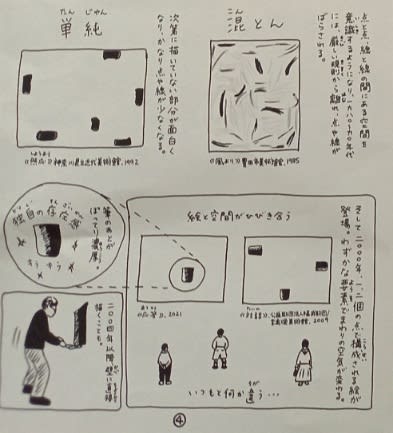 点と点、線と線の間にある空間を
意識するようになり、一九八〇年代
には、厳しい規則から離れ、点や線が
ばらされる。
こん
混とん
《風より》豊田市美術館、1985
たんじゅん
単純
次第に描いていない部分が面白く
なり、かなり点や線が少なくなる。
《照応》神奈川県立近代美術館、1992
そして2000年、1、2個の点で構成される絵が
登場。わずかな要素でまわりの空気が変わる。
絵と空間がひびき合う
2021
2009
いつもと何か違う…
独自の存在感
筆のあとが
ぼってり濃厚。
二〇〇四年以降 壁に直接
描くことも。
④